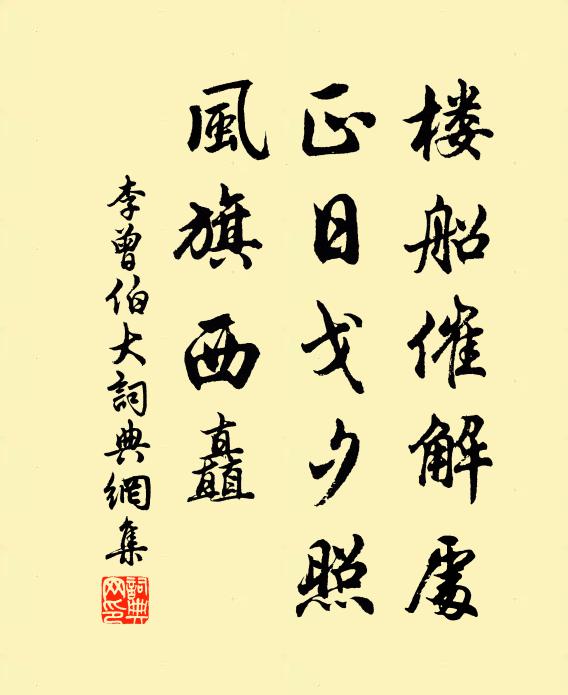 楼船催解處
正日戈夕照
風旗西矗
李曾伯大詞典網集
詞典网印